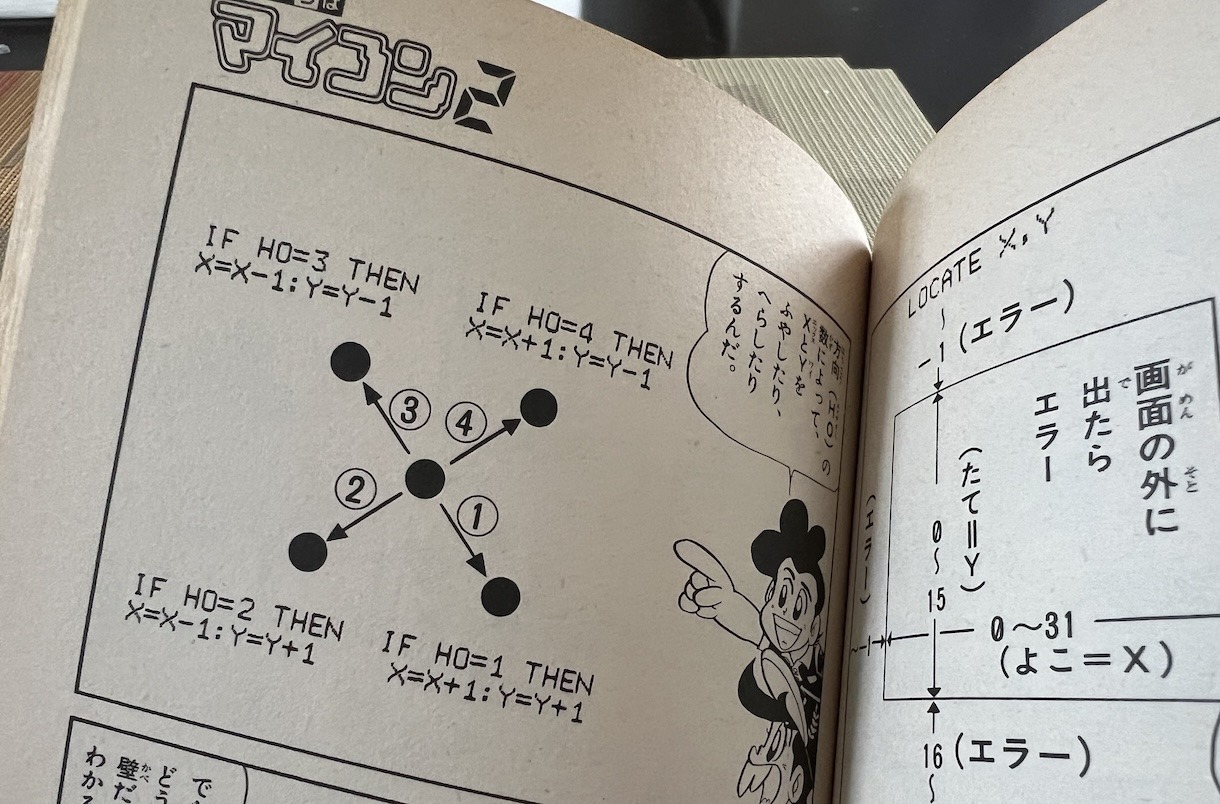 マイコン2
IF HO=3 THEN
X=X-1:Y=Y-1
IF HO=4 THEN
X=X+1:Y=Y-1
方向（HO）の
数によって、
XとYを
ふやしたり、
へらしたり
するんだ。
③
④
②
①
IF HO=2 THEN
X=X-1:Y=Y+1
IF HO=1 THEN
X=X+1:Y=Y+1
LOCATE X,Y
〜
-1（エラー）
画面の外に
出たら
エラー
（たて＝Y）
0〜15
（エラー）
〜-1
0〜31
（よこ＝X）
16（エラー）
〜